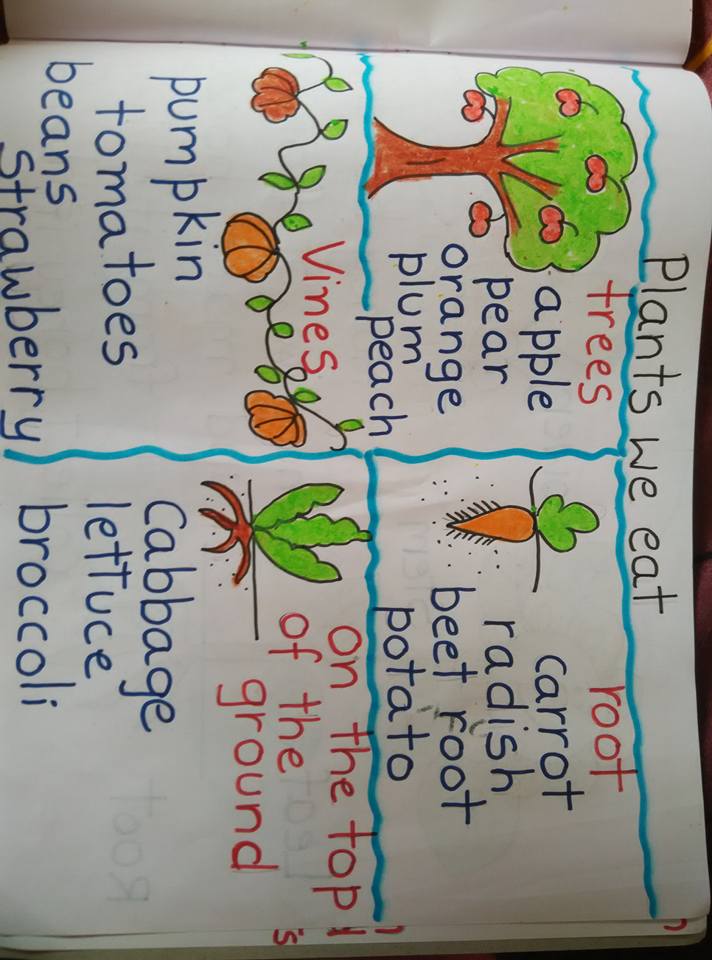 Plants we eat
trees
apple
pear
orange
plum
peach
root
carrot
radish
beet root
potato
Vines
pumpkin
tomatoes
beans
Strawberry
On the top
of the
ground
Cabbage
lettuce
broccoli